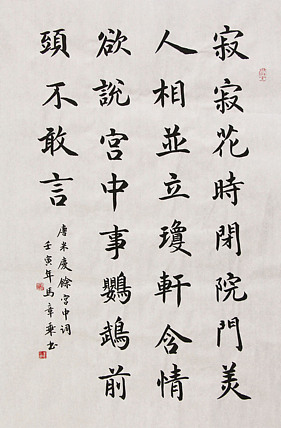 寂寂花時閉院門美
人相並立瓊軒含情
欲說宮中事鸚鵡前
頭不敢言
唐朱慶餘宮中詞
壬寅年馬章乘書